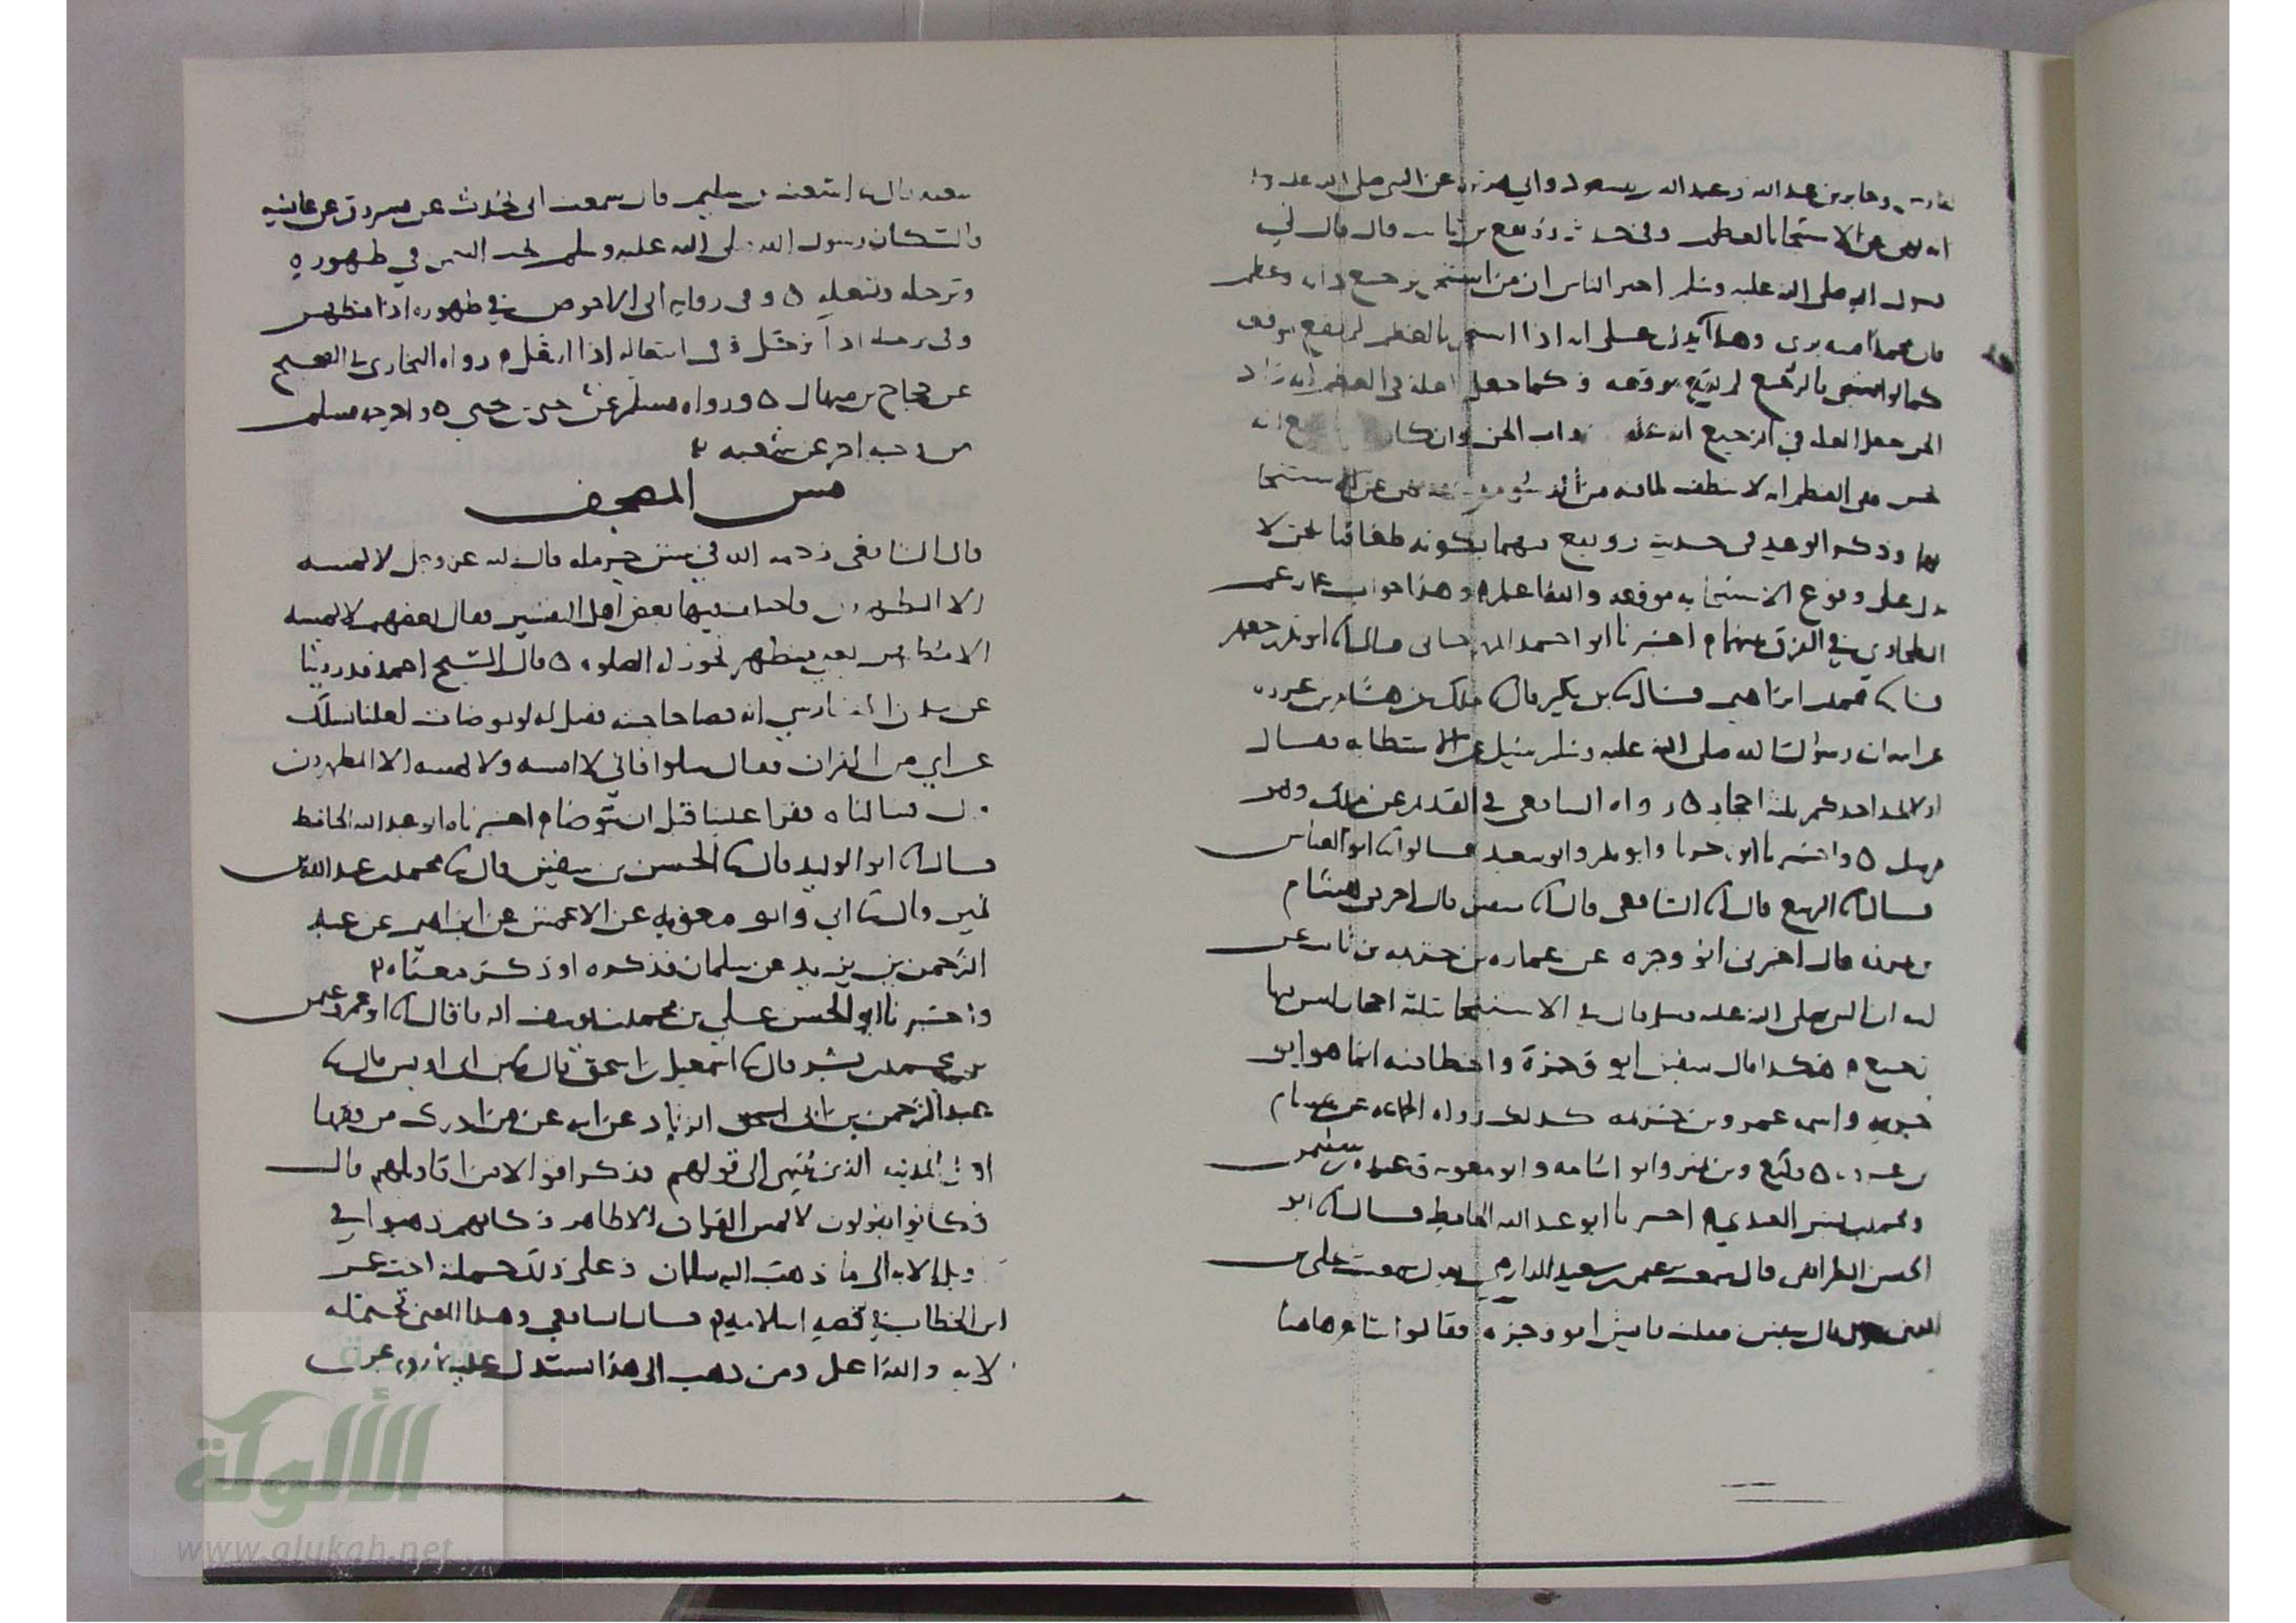 وجابر بن عبد الله وعبد الله بن مسعود وابي هريرة عن النبي صلى الله عليه
انه نهى عن الاستنجا بالعظم وفي حديث رويفع بن ثابت قال قال لي
رسول الله صلى الله عليه وسلم اخبر الناس ان من استنجى برجيع دابه وعظم
فان محمدا منه بري وهذا يدل على انه اذا استنجى بالعظم لم يقع موقعه
كما لو استنجى بالرجيع لم يقع موقعه وكما جعل العلة في العظم انه زاد
الجن جعل العلة في الرجيع انه علف دواب الجن وان كان
في العظم انه لا ينظف لما فيه من الدسومه فقد نهى عن الاستنجا
بهما وذكر الوعيد في حديث رويفع فيهما بكونه طعاما للجن لا
يدل على وقوع الاستنجا به موقعه والله اعلم وهذا جواب عما زعم
الطحاوي في الفرق بينهما م اخبرنا ابو احمد المهرجاني قال انا ابو بكر بن جعفر
قال نا محمد بن ابراهيم قال نا ابن بكير قال نا ملك عن هشام بن عروه
عن ابيه ان رسول الله صلى الله عليه وسلم سئل عن الاستطابه فقال
اولا يجد احدكم ثلثة احجار ه رواه الشافعي في القديم عن ملك وهو
مرسل ه واخبرنا ابو زكريا وابو بكر وابو سعيد قالوا نا ابو العباس
قال انا الربيع قال انا الشافعي قال انا سفين قال اخبرني هشام
بن عروه قال اخبرني ابو وجزه عن عماره بن خزيمه بن ثابت عن
ابيه ان النبي صلى الله عليه وسلم قال في الاستنجا بثلثة احجار ليس فيها
رجيع م هكذا قال سفين ابو وجزة واخطا فيه انما هو ابو
خزيمه واسمه عمرو بن خزيمه كذلك رواه الجماعه عن هشام
بن عروه ه وكيع وبن نمير وابو اسامه وابو معويه وعبده بن سليمن
ومحمد بن بشر العبدي م اخبرنا ابو عبد الله الحافظ قال انا ابو
الحسن الطرائفي قال سمعت عثمن بن سعيد الدارمي يقول سمعت علي بن
المديني يقول قال سفين فقلت فايش ابو وجزه فقالوا شاعر هاهنا
شعبه قال نا اشعث بن سليم قال سمعت ابي يحدث عن مسروق عن عائشه
قالت كان رسول الله صلى الله عليه وسلم يحب التيمن في طهوره
وترجله وتنعله ه وفي رواية ابي الاحوص في طهوره اذا تطهر
وفي ترجله اذا ترجل وفي انتعاله اذا انتعل م رواه البخاري في الصحيح
عن حجاج بن منهال ه ورواه مسلم عن يحيى بن يحيى ه واخرجه مسلم
من وجه اخر عن شعبه
مس المصحف
قال الشافعي رحمه الله في سنن حرمله قال الله عز وجل لا يمسه
الا المطهرون فاختلف فيها بعض اهل التفسير فقال بعضهم لا يمسه
الا متطهر يعني متطهر تجوز له الصلوه ه قال الشيخ احمد قد روينا
عن سلمان الفارسي انه قضا حاجته فقيل له لو توضات لعلنا نسلك
عن اي من القران فقال سلوا فاني لا امسه ولا يمسه الا المطهرون
قال فسالناه فقرا علينا قبل ان يتوضا م اخبرناه ابو عبد الله الحافظ
قال نا ابو الوليد قال نا الحسن بن سفين قال نا محمد بن عبد الله بن
نمير قال نا ابي وابو معويه عن الاعمش عن ابراهيم عن عبد
الرحمن بن يزيد عن سلمان فذكره او ذكر معناه
واخبرنا ابو الحسن علي بن محمد بن يوسف الرفا قال نا ابو عمرو عثمن
بن محمد بن بشر قال نا اسمعيل بن اسحق قال نا بن ابي اويس قال نا
عبد الرحمن بن ابي الزناد عن ابيه عن من ادرك من فقها
اهل المدينه الذين ينتهى الى قولهم فذكر امورا من اقاويلهم قال
وكانوا يقولون لا يمس القران الا طاهر وكانهم ذهبوا في
تاويل الايه الى ما ذهب اليه سلمان وعلى ذلك حملته اخت عمر
ابن الخطاب في قصه اسلامه م قال الشافعي وهذا المعنى تحتمله
الايه والله اعلم ومن ذهب الى هذا استدل عليه بما روي عن
الألوكة
www.alukah.net